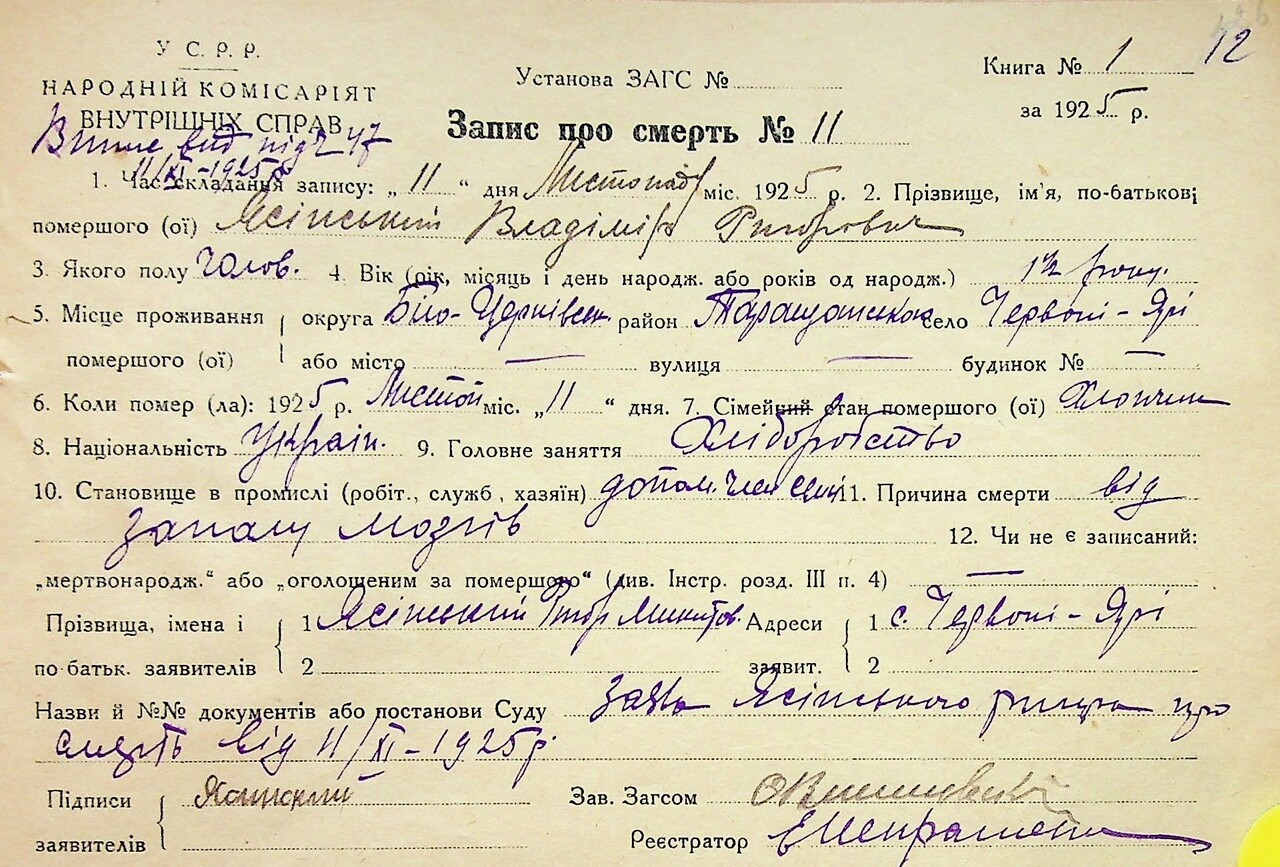 12
У С. Р. Р.
НАРОДНІЙ КОМІСАРІЯТ
ВНУТРІШНІХ СПРАВ
Установа ЗАГС №
Книга № 1
за 1925 р.
Запис про смерть № 11
вид під ч 47
11/XI-1925р
1. Час складання запису: „ 11 “ дня Листопад міс. 1925 р. 2. Прізвище, ім'я, по-батькові
помершого (ої) Ясінський Владімір Григорович
3. Якого полу Чолов. 4. Вік (рік, місяць і день народж. або років од народж.) 1½ року.
5. Місце проживання помершого (ої) округа Біло-Церківськ. район Таращанськ село Червоні-Ярі
або місто — вулиця — будинок № —
6. Коли помер (ла): 1925 р. Листоп міс. „ 11 “ дня. 7. Сімейний стан помершого (ої) Хлопчик
8. Національність Україн. 9. Головне заняття Хліборобство
10. Становище в промислі (робіт., служб , хазяїн) допом. член сімї 11. Причина смерти від
запалу мозгів 12. Чи не є записаний:
„мертвонародж.“ або „оголошеним за помершого“ (див. Інстр. розд. III п. 4) —
Прізвища, імена і по батьк. заявителів 1 Ясінський Григор Микитов. Адреси заявит. 1 с. Червоні-Ярі
2 2
Назви й №№ документів або постанови Суду заява Ясінського про
смерть від 11/XI-1925р.
Підписи заявителів Зав. Загсом
Реєстратор